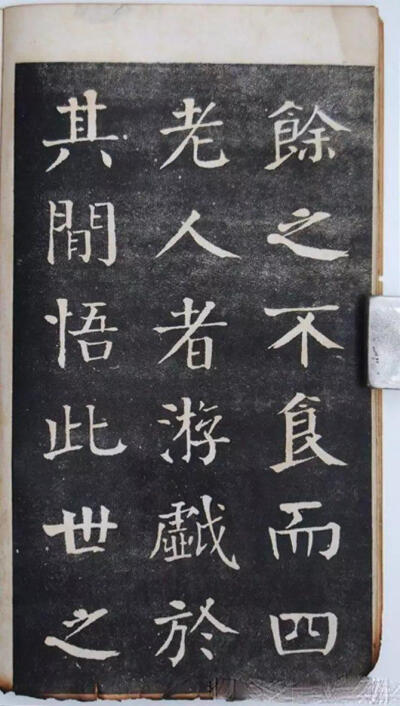 餘之不食而四
老人者游戲於
其間悟此世之